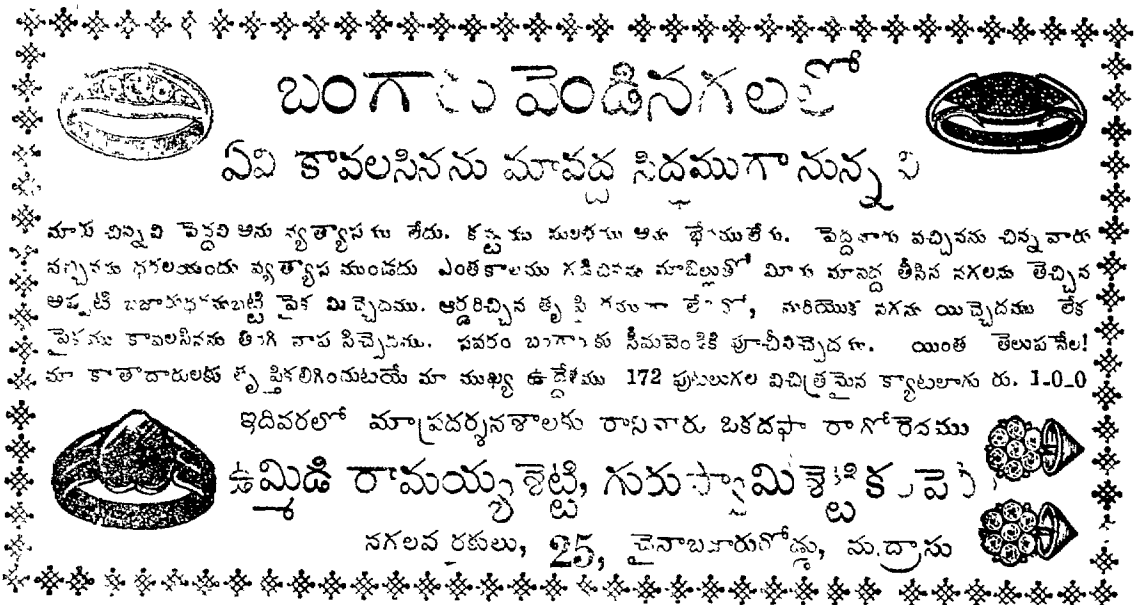 బంగారు వెండినగలలో
ఏవి కావలసినను మావద్ద సిద్ధముగా నున్నవి
మాకు చిన్నవి పెద్దవి అను వ్యత్యాసము లేదు. కష్టము సులభము అను భేదములేదు. పెద్దవారు వచ్చినను చిన్నవారు
వచ్చినను ధరలయందు వ్యత్యాస ముండదు ఎంతకాలము గడచినను మాబిల్లుతో మీరు మావద్ద తీసిన నగలను తెచ్చిన
అప్పటి బజారుధరనుబట్టి పైక మిచ్చెదము. ఆర్డరిచ్చిన తృప్తి లేనిచో, మరియొక నగను యిచ్చెదము లేక
పైకము కావలసినను తిరిగి వాప సిచ్చెదము. సవరం బంగారుకు పూచీనిచ్చెదము. యింత తెలుపనేల!
మా ఖాతాదారులకు తృప్తికలిగించుటయే మా ముఖ్య ఉద్దేశము 172 పుటలుగల విచిత్రమైన క్యాటలాగు రు. 1-0-0
ఇదివరలో మాప్రదర్శనశాలకు రానివారు ఒకదఫా రాగోరెదము
ఉమ్మిడి రామయ్యశెట్టి, గురుస్వామిశెట్టి కంపెనీ
నగలవర్తకులు, 25, చైనాబజారురోడ్డు, మద్రాసు